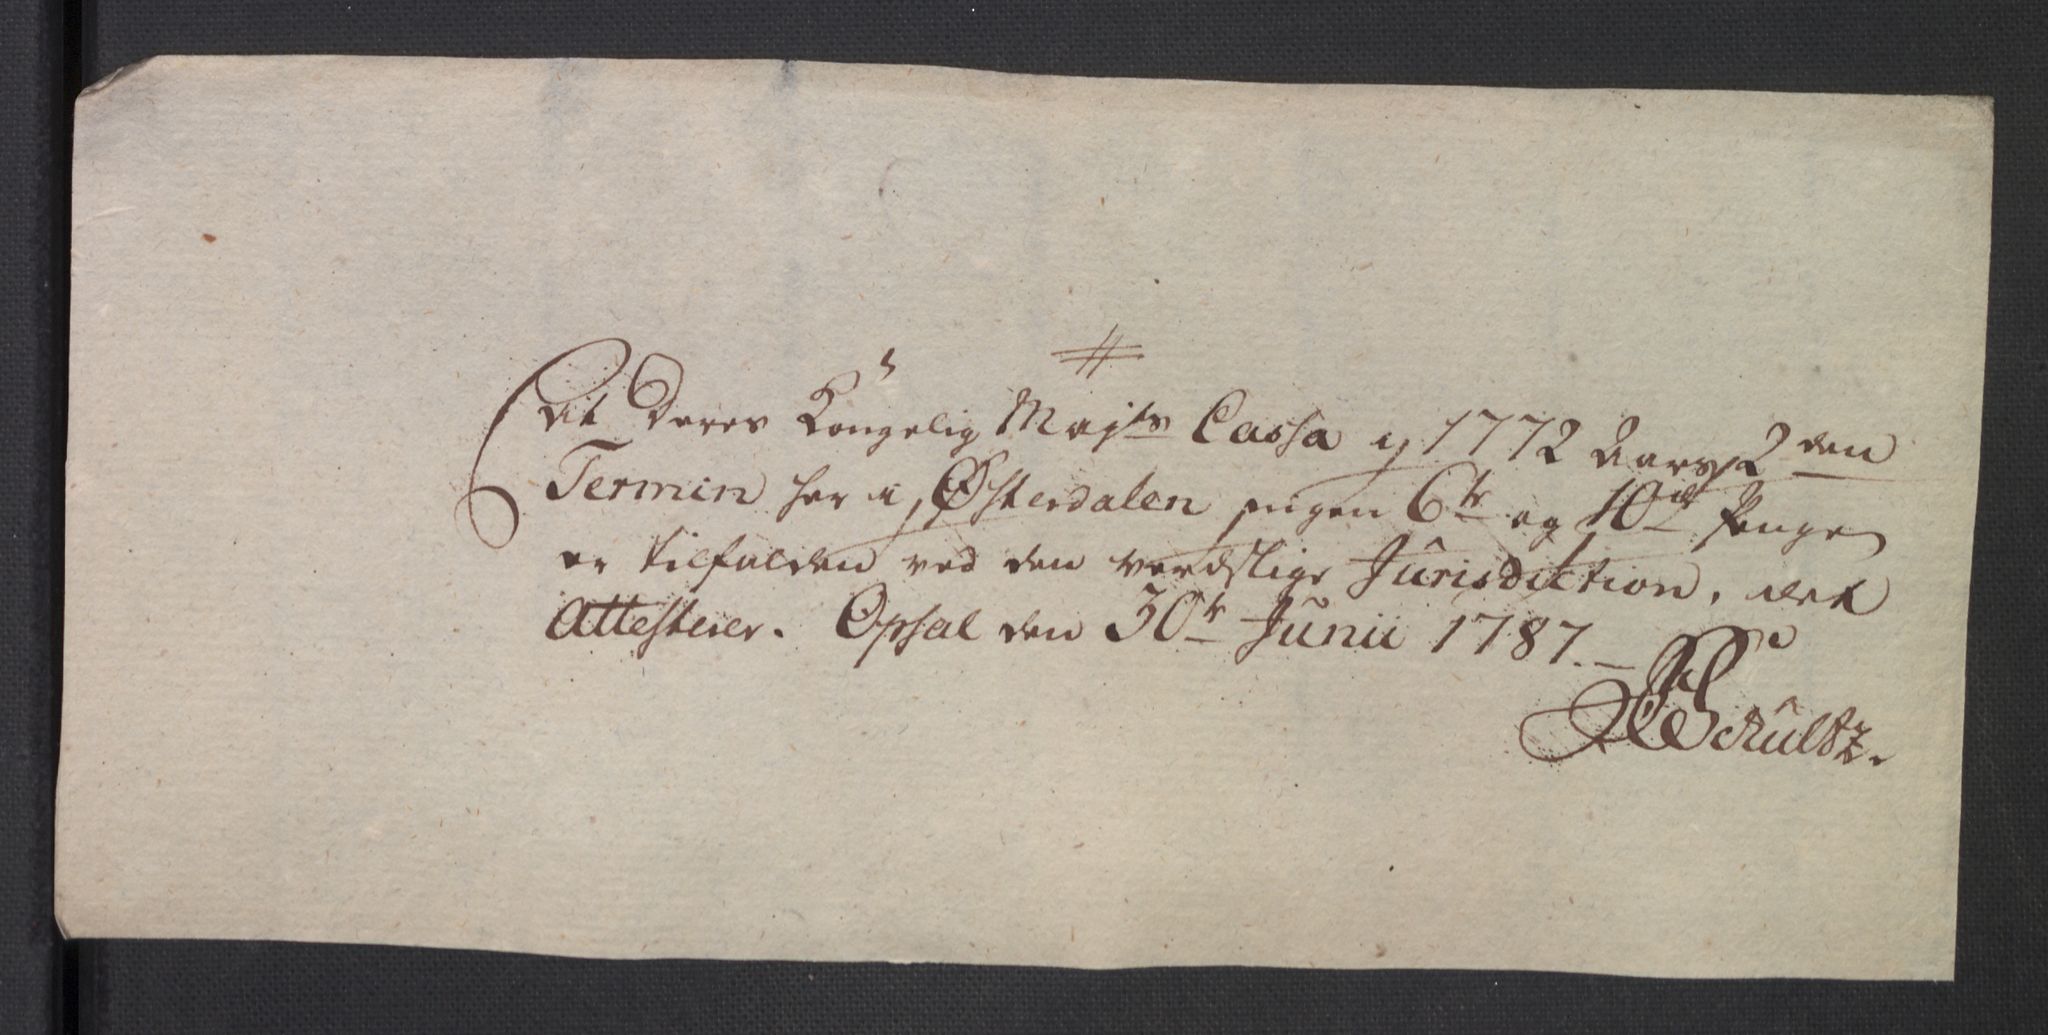 #
At Deres Kongelig Maj:ts Cassa i 1772 Aars 2den
Termin her i Østerdalen ingen 6te og 10de Penge
er tilfalden ved den verdslige Jurisdiktion, det
Attesterer. Opsal den 30te Junii 1787.
Schultz.